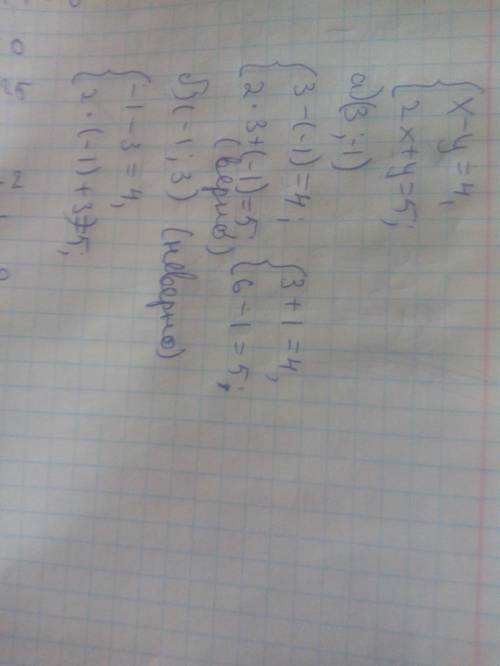 { x-y=4,
{ 2x+y=5;
а) (3;-1)
{ 3-(-1)=4; { 3+1=4,
{ 2·3+(-1)=5; { 6-1=5;
(верно)
б) (-1;3) (неверно)
{ -1-3=4,
{ 2·(-1)+3≠5;